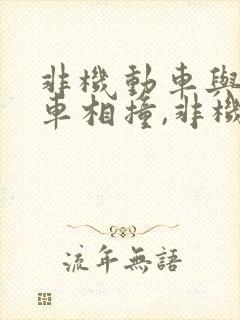 非機動車與
車相撞,非機
流年無語